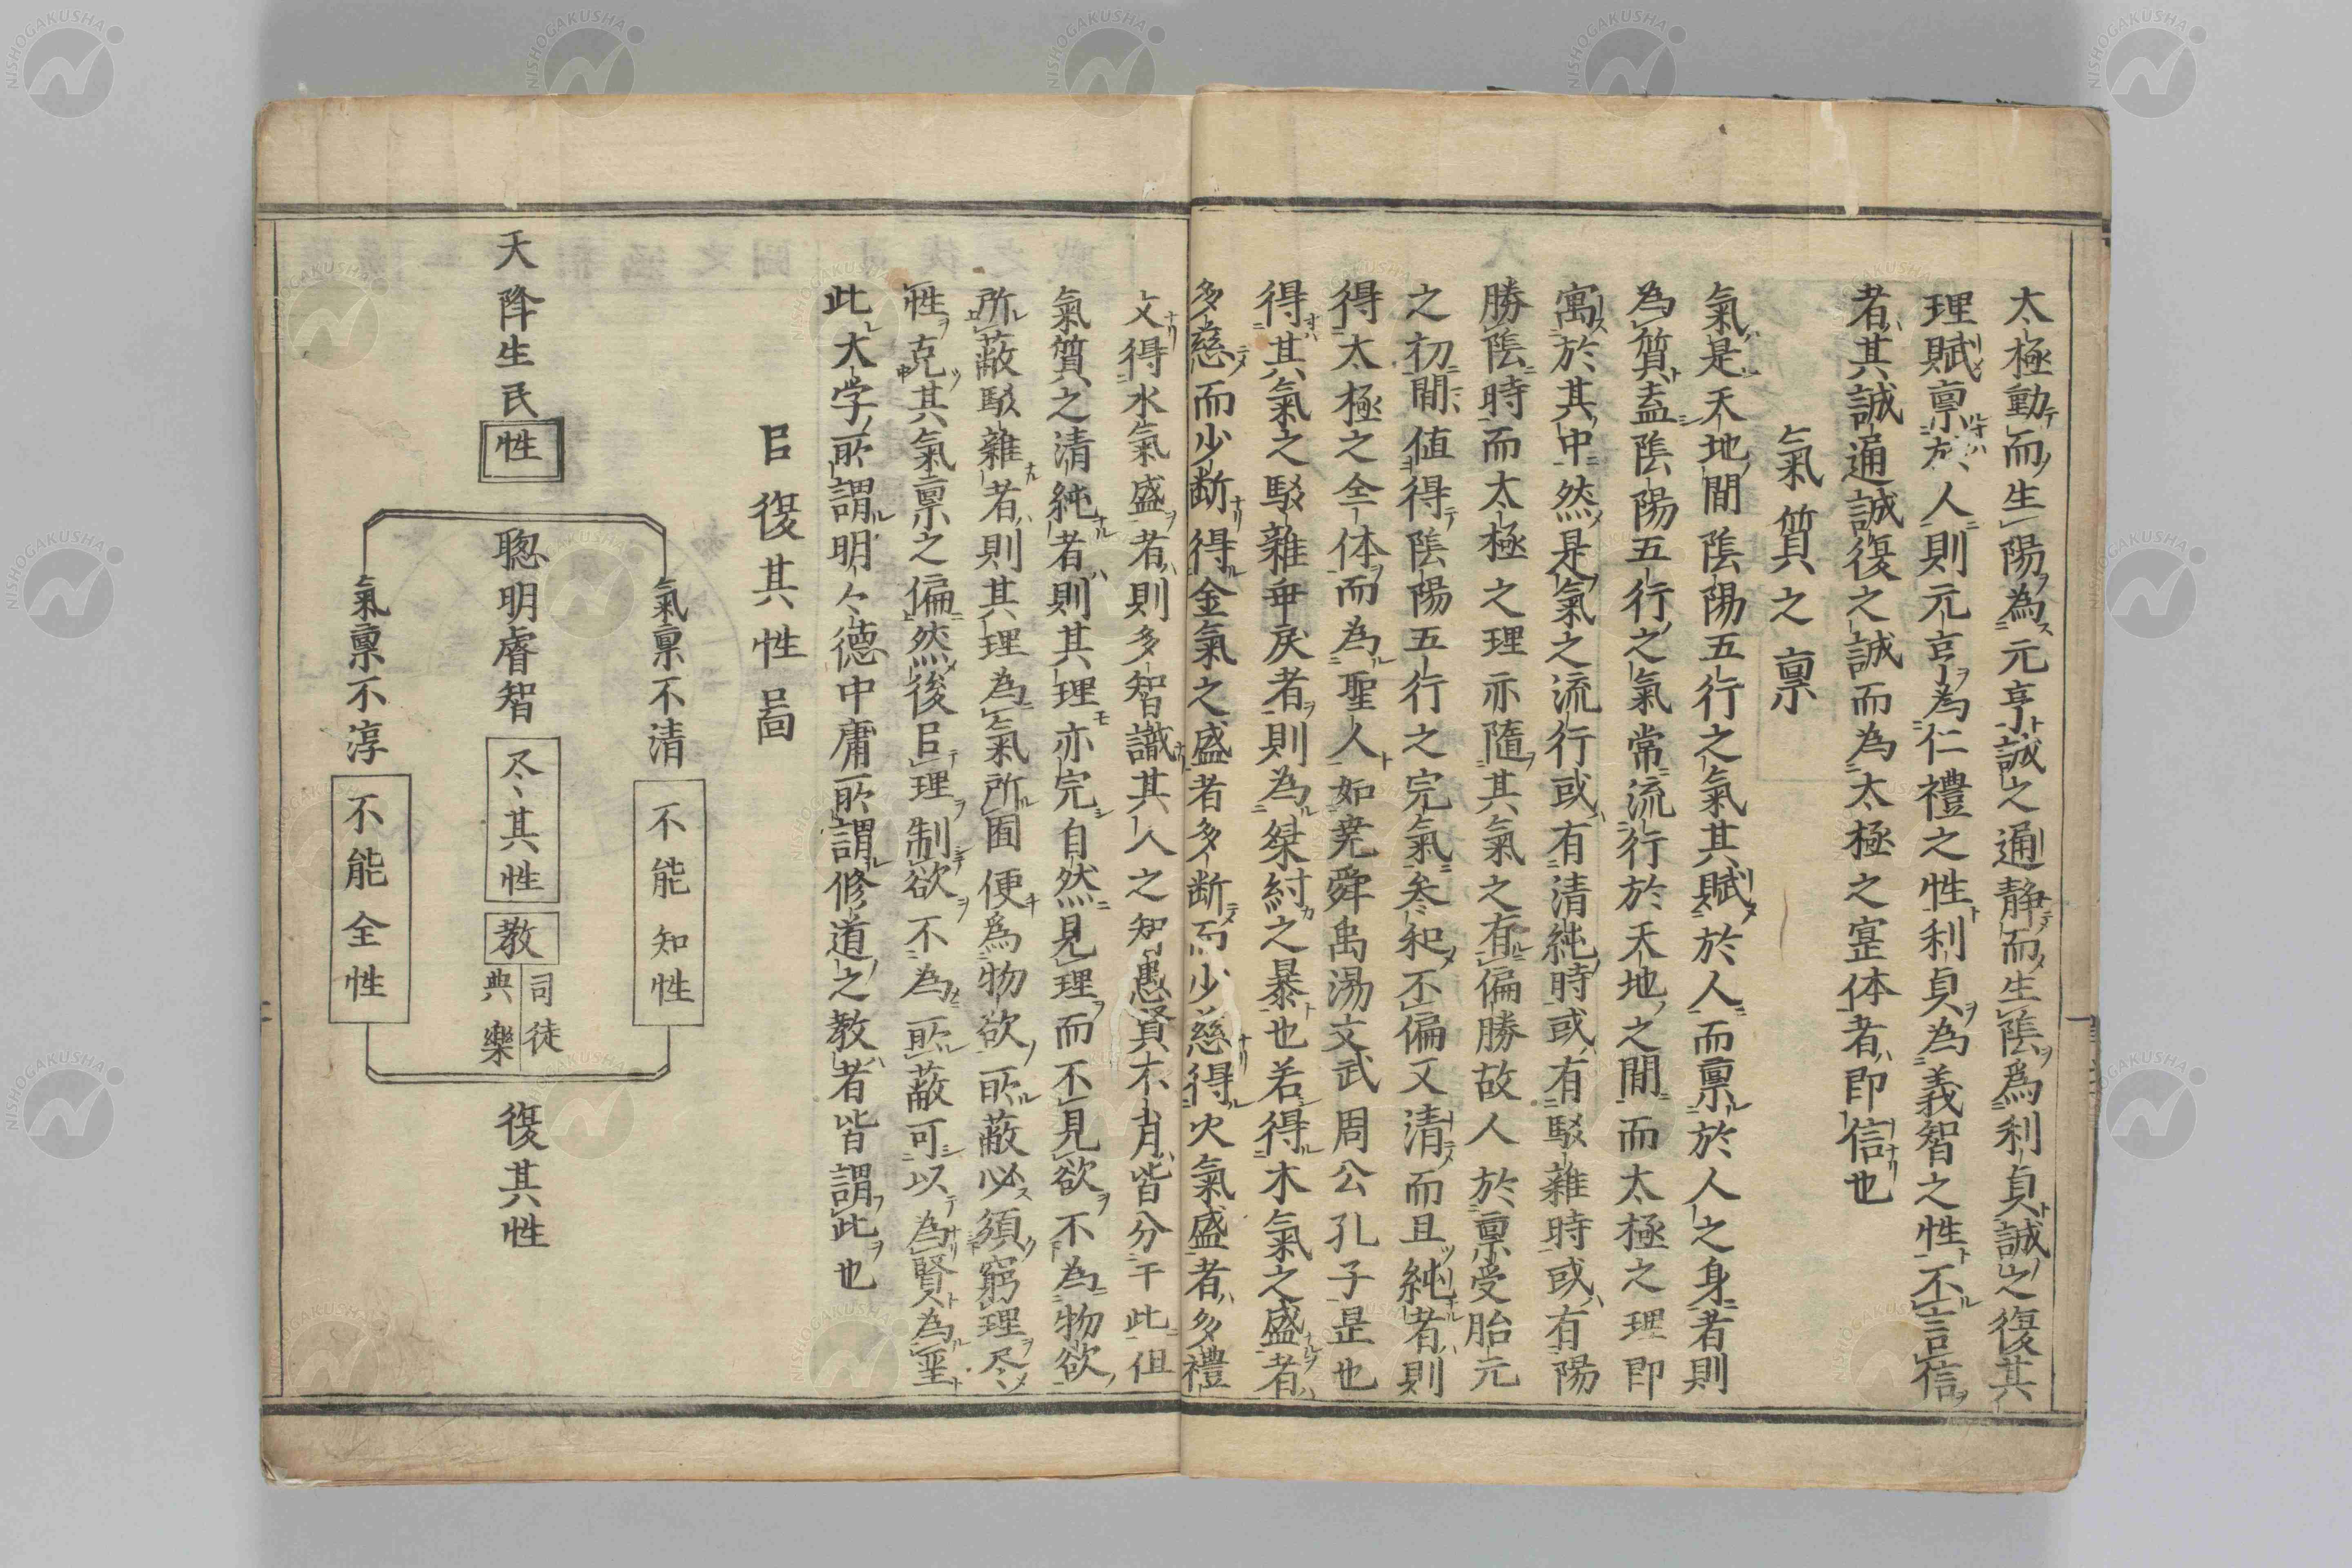 太極動而生陽為元亨誠之通静而生陰爲利貞誠之復其
理賦禀於人則元亨為仁禮之性利貞為義智之性不言信
者其誠通誠復之誠而為太極之寔体者即信也
氣質之禀
氣是天地間陰陽五行之氣其賦於人而禀於人之身者則
為質盖陰陽五行之氣常流行於天地之間而太極之理即
寓於其中然是氣之流行或有清純時或有駁雜時或有陽
勝陰時而太極之理亦隨其氣之有偏勝故人於禀受胎元
之初間值得陰陽五行之完氣叅和不偏又清而且純者則
得太極之全体而為聖人如尭舜禹湯文武周公孔子是也
得其氣之駁雜乖戻者則為桀紂之暴也若得木氣之盛者
多慈而少断得金氣之盛者多断而少慈得火氣盛者多禮
文得水氣盛者則多智識其人之知愚賢不肖皆分于此但
氣質之清純者則其理亦完自然見理而不見欲不為物欲
所蔽駁雜者則其理為氣所囿便爲物欲所蔽必須窮理尽
性克其氣禀之偏然後㠯理制欲不為所蔽可以為賢人為聖
此大学所謂明々德中庸所謂修道之教者皆謂此也
㠯復其性啚
天降生民性
氣禀不清 不能知性
聦明睿智 尽其性 教 司徒 典樂
氣禀不淳 不能全性
復其性
NISHOGAKUSHA